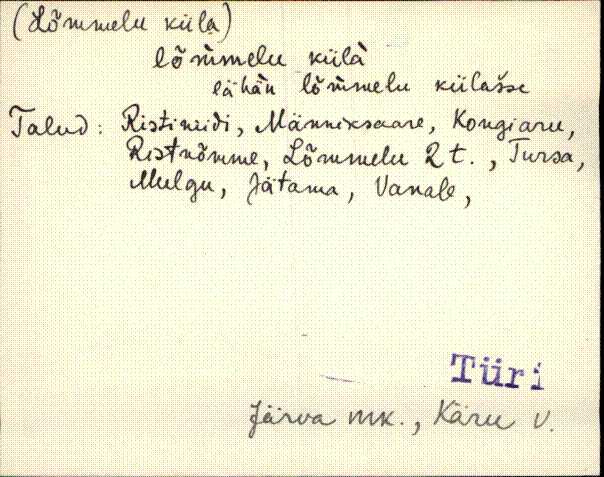 (Lõmmelu küla)
lõm̀melu külà
lähàn lõm̀melu külasse
Talud: Ristiniidi, Männiksaare, Kongiaru,
Ristnõmme, Lõmmelu 2 t., Tursa,
Mulgu, Jätama, Vanale,
Türi
Järva mk., Käru v.